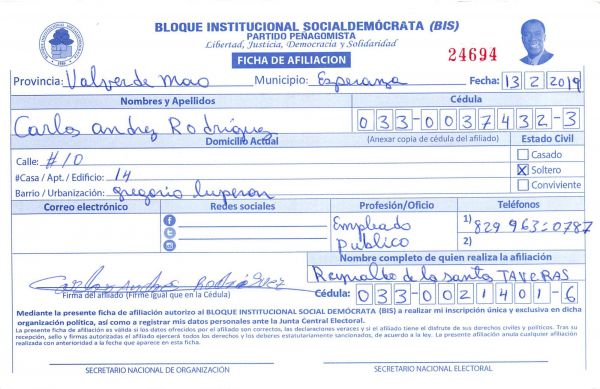 BLOQUE INSTITUCIONAL SOCIALDEMÓCRATA (BIS)
PARTIDO PEÑAGOMISTA
Libertad, Justicia, Democracia y Solidaridad
FICHA DE AFILIACION
24694
Provincia: Valverde Mao Municipio: Esperanza Fecha: 13 2 2019
Nombres y Apellidos Cédula
Carlos andrez Rodríguez 033-0037432-3
Domicilio Actual (Anexar copia de cédula del afiliado) Estado Civil
Calle: #10 Casado
#Casa / Apt. / Edificio: 14 X Soltero
Barrio / Urbanización: gregorio luperon Conviviente
Correo electrónico Redes sociales Profesión/Oficio Teléfonos
Empleado Publico 1) 829 963-0787
2)
Nombre completo de quien realiza la afiliación
Reynaldo de lo santo TAVERAS
Carlos Andres Rodriguez
Firma del afiliado (Firme igual que en la Cédula) Cédula: 033-0021401-6
Mediante la presente ficha de afiliación autorizo al BLOQUE INSTITUCIONAL SOCIAL DEMÓCRATA (BIS) a realizar mi inscripción única y exclusiva en dicha
organización política, así como a registrar mis datos personales ante la Junta Central Electoral.
La presente afiliación es válida si los datos ofrecidos por el afiliado son correctos, las declaraciones veraces y si el afiliado tiene el disfrute de sus derechos civiles y políticos. Tras su
recepción, sello y firmas autorizadas el afiliado ejercerá todos los derechos y los deberes estatutariamente sancionados, de acuerdo a la ley. La presente afiliación anula cualquier afiliación
realizada con anterioridad a la fecha que aparece en esta ficha.
SECRETARIO NACIONAL DE ORGANIZACIÓN SECRETARIO NACIONAL ELECTORAL